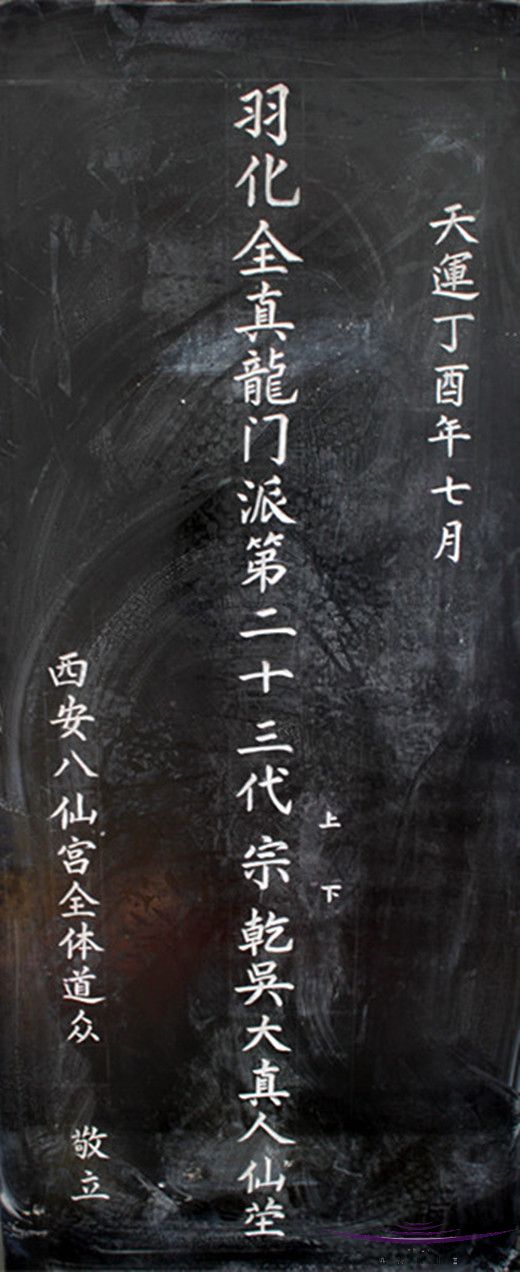 天運丁酉年七月
上 下
羽化全真龍门派第二十三代宗乾吳大真人仙茔
西安八仙宫全体道众 敬立